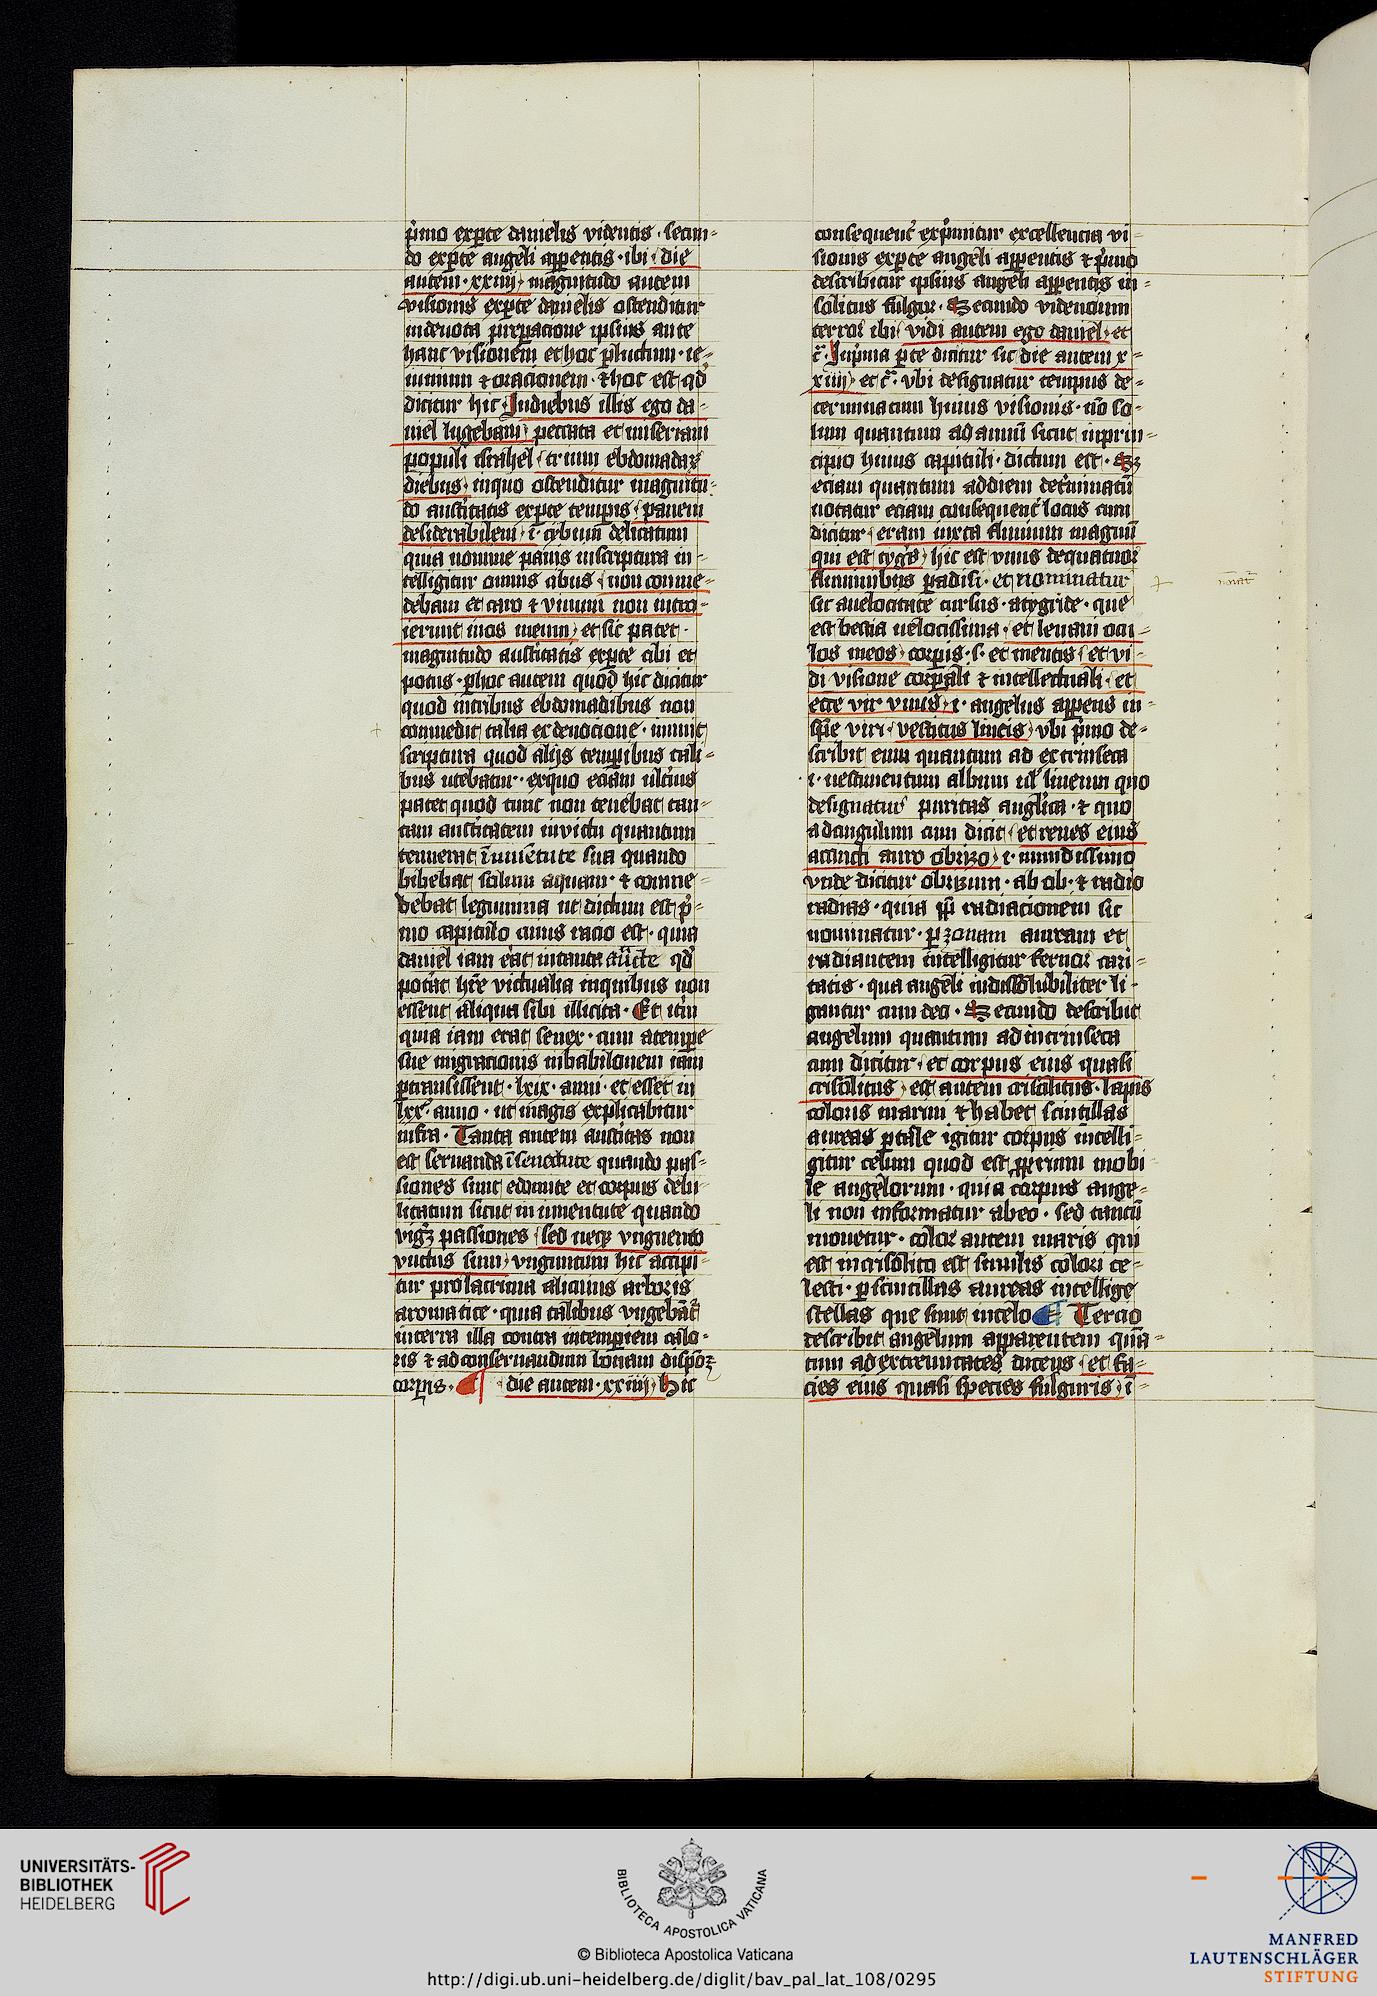 p̾mo ex ꝑte danielis videntis · secun-
do ex ꝑte angeli apparentis · ibi · die
autem · xxiiij · magnitudo autem
visionis ex ꝑte danielis ostenditur
in deuota preparacione ipsius ante
hanc visionem et hoc ꝑ luctum · ie-
iunium ⁊ oracionem · ⁊ hoc est qd̾
dicitur hic · In diebus illis ego da-
niel lugebam · peccata et miseriam
populi israhel · trium ebdomadaꝝ
diebus · in quo ostenditur magnitu-
do austitatis ex ꝑte tempis · panem
desiderabilem · i · cybum delicatum
quia nomine panis in scriptura in-
telligitur omnis cibus · non comme-
debam et caro ⁊ vinum non intro-
ierunt in os meum · et sic patet ·
magnitudo austitatis ex ꝑte cibi et
potus · ꝑ hoc autem quod hic dicitur
quod in tribus ebdomadibus non
commedit talia ex deuocione · innuit
scriptura quod alijs temporibus tali-
bus utebatur · ex quo eciam ult̾ius
patet quod tunc non tenebat tan-
tam austitatem in victu quantum
tenuerat ī iuuētute sua quando
bibebat solum aquam · ⁊ comme-
debat legumina ut dictum est p̾-
mo capitulo cuius racio est · quia
daniel iam erat in tanta auctte qd̾
poterat hr̄e victualia in quibus non
essent aliqua sibi illicita · Et it̾m
quia iam erat senex · cum a tempe
sue migracionis in babilonem iam
ꝑtransissent · lxix · anni · et esset in
lxx · anno · ut magis explicabitur
infra · Tanta autem austitas non
est seruanda ī senectute quando pas-
siones sunt edomite et corpus debi-
litatum sicut in iuuentute quando
vigꝫ passiones · sed neqꝫ vnguento
vnctus sum · vnguentum hic accipi-
tur pro lacrima alicuius arboris
aromatice · quia talibus vngebāt̾
in terra illa contra intemperiem calo-
ris ⁊ ad conseruandum bonam dispōꝫ
corpis · ¶ die autem · xxiiij · Hic
consequent̾ exp̾mitur excellencia vi-
sionis ex ꝑte angeli apparentis ⁊ p̾mo
describitur ipsius angeli apparentis in-
solitus fulgor · Secundo videncium
terror ibi · vidi autem ego daniel · et
c̄ · In p̾ma ꝑte dicitur sic · die autem x-
xiiij · et c̄ · vbi designatur tempus de-
terminatum huius visionis · nō so-
lum quantum ad annū sicut in prin-
cipio huius capituli · dictum est · Sꝫ
eciam quantum ad diem det̾minatū
notatur eciam consequent̾ locus cum
dicitur · eram iuxta fluuium magnū
qui est tygris · hic est vnus de quatuor
fluminibus paradisi · et nominatur
nominat̾
sic a uelocitate cursus · a tygride · que
est bestia uelocissima · et leuaui ocu-
los meos · corpis · s · et mentis · et vi-
di visione corporali ⁊ intellectuali · et
ecce vir vnus · i · angelus apparens in
spē viri · vestitus lineis · vbi p̾mo de-
scribit eum quantum ad extrinseca
i · uestimentum album uł lineum quo
designatur puritas angelica · ⁊ quo
ad cingulum cum dicit · et renes eius
accincti auro obrizo · i · mundissimo
vnde dicitur obrizum · ab ob · ⁊ radio
radias · quia ꝓpter radiacionem sic
nominatur · ꝑ zonam auream et
radiantem intelligitur feruor cari-
tatis · qua angeli indissolubiliter li-
gantur cum deo · Secundo describit
angelum quantum ad intrinseca
cum dicitur · et corpus eius quasi
crisolitus · est autem crisolitus · lapis
coloris marini ⁊ habet scintillas
aureas ꝑ tale igitur corpus intelli-
gitur celum quod est ꝓprium mobi-
le angelorum · quia corpus ange-
li non informatur ab eo · sed tantū
mouetur · color autem maris qui
est in crisolito est similis colori ce-
lesti · ꝑ scintillas aureas intellige
stellas que sunt in celo ¶ Tercio
describit angelum apparentem quā-
tum ad extremitates dicens · et fa-
cies eius quasi species fulguris · i-
UNIVERSITÄTS-
BIBLIOTHEK
HEIDELBERG
BIBLIOTECA APOSTOLICA VATICANA
© Biblioteca Apostolica Vaticana
http://digi.ub.uni-heidelberg.de/diglit/bav_pal_lat_108/0295
MANFRED
LAUTENSCHLÄGER
STIFTUNG